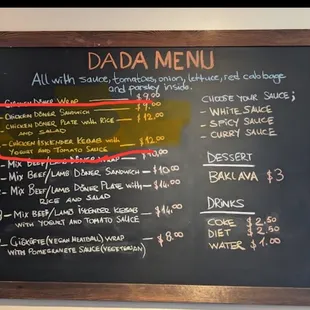 DADA MENU
All with sauce, tomatoes, onion, lettuce, red cabbage
and parsley inside.
Chicken Döner Wrap $9.00
- Chicken Döner Sandwich $9.00
- Chicken Döner Plate with Rice and Salad $12.00
- Chicken Iskender Kebab with Yogurt and Tomato Sauce $12.00
- Mix Beef/Lamb Döner Wrap $10.00
- Mix Beef/Lamb Döner Sandwich $10.00
- Mix Beef/Lamb Döner Plate with Rice and Salad $14.00
- Mix Beef/Lamb Iskender Kebab with Yogurt and Tomato Sauce $14.00
- Çiğköfte (Vegan Meatball) Wrap $8.00
with Pomegranate Sauce (Vegetarian)
Choose your sauce;
- White Sauce
- Spicy Sauce
- Curry Sauce
Dessert
Baklava $3
Drinks
Coke $2.50
Diet $2.50
Water $1.00